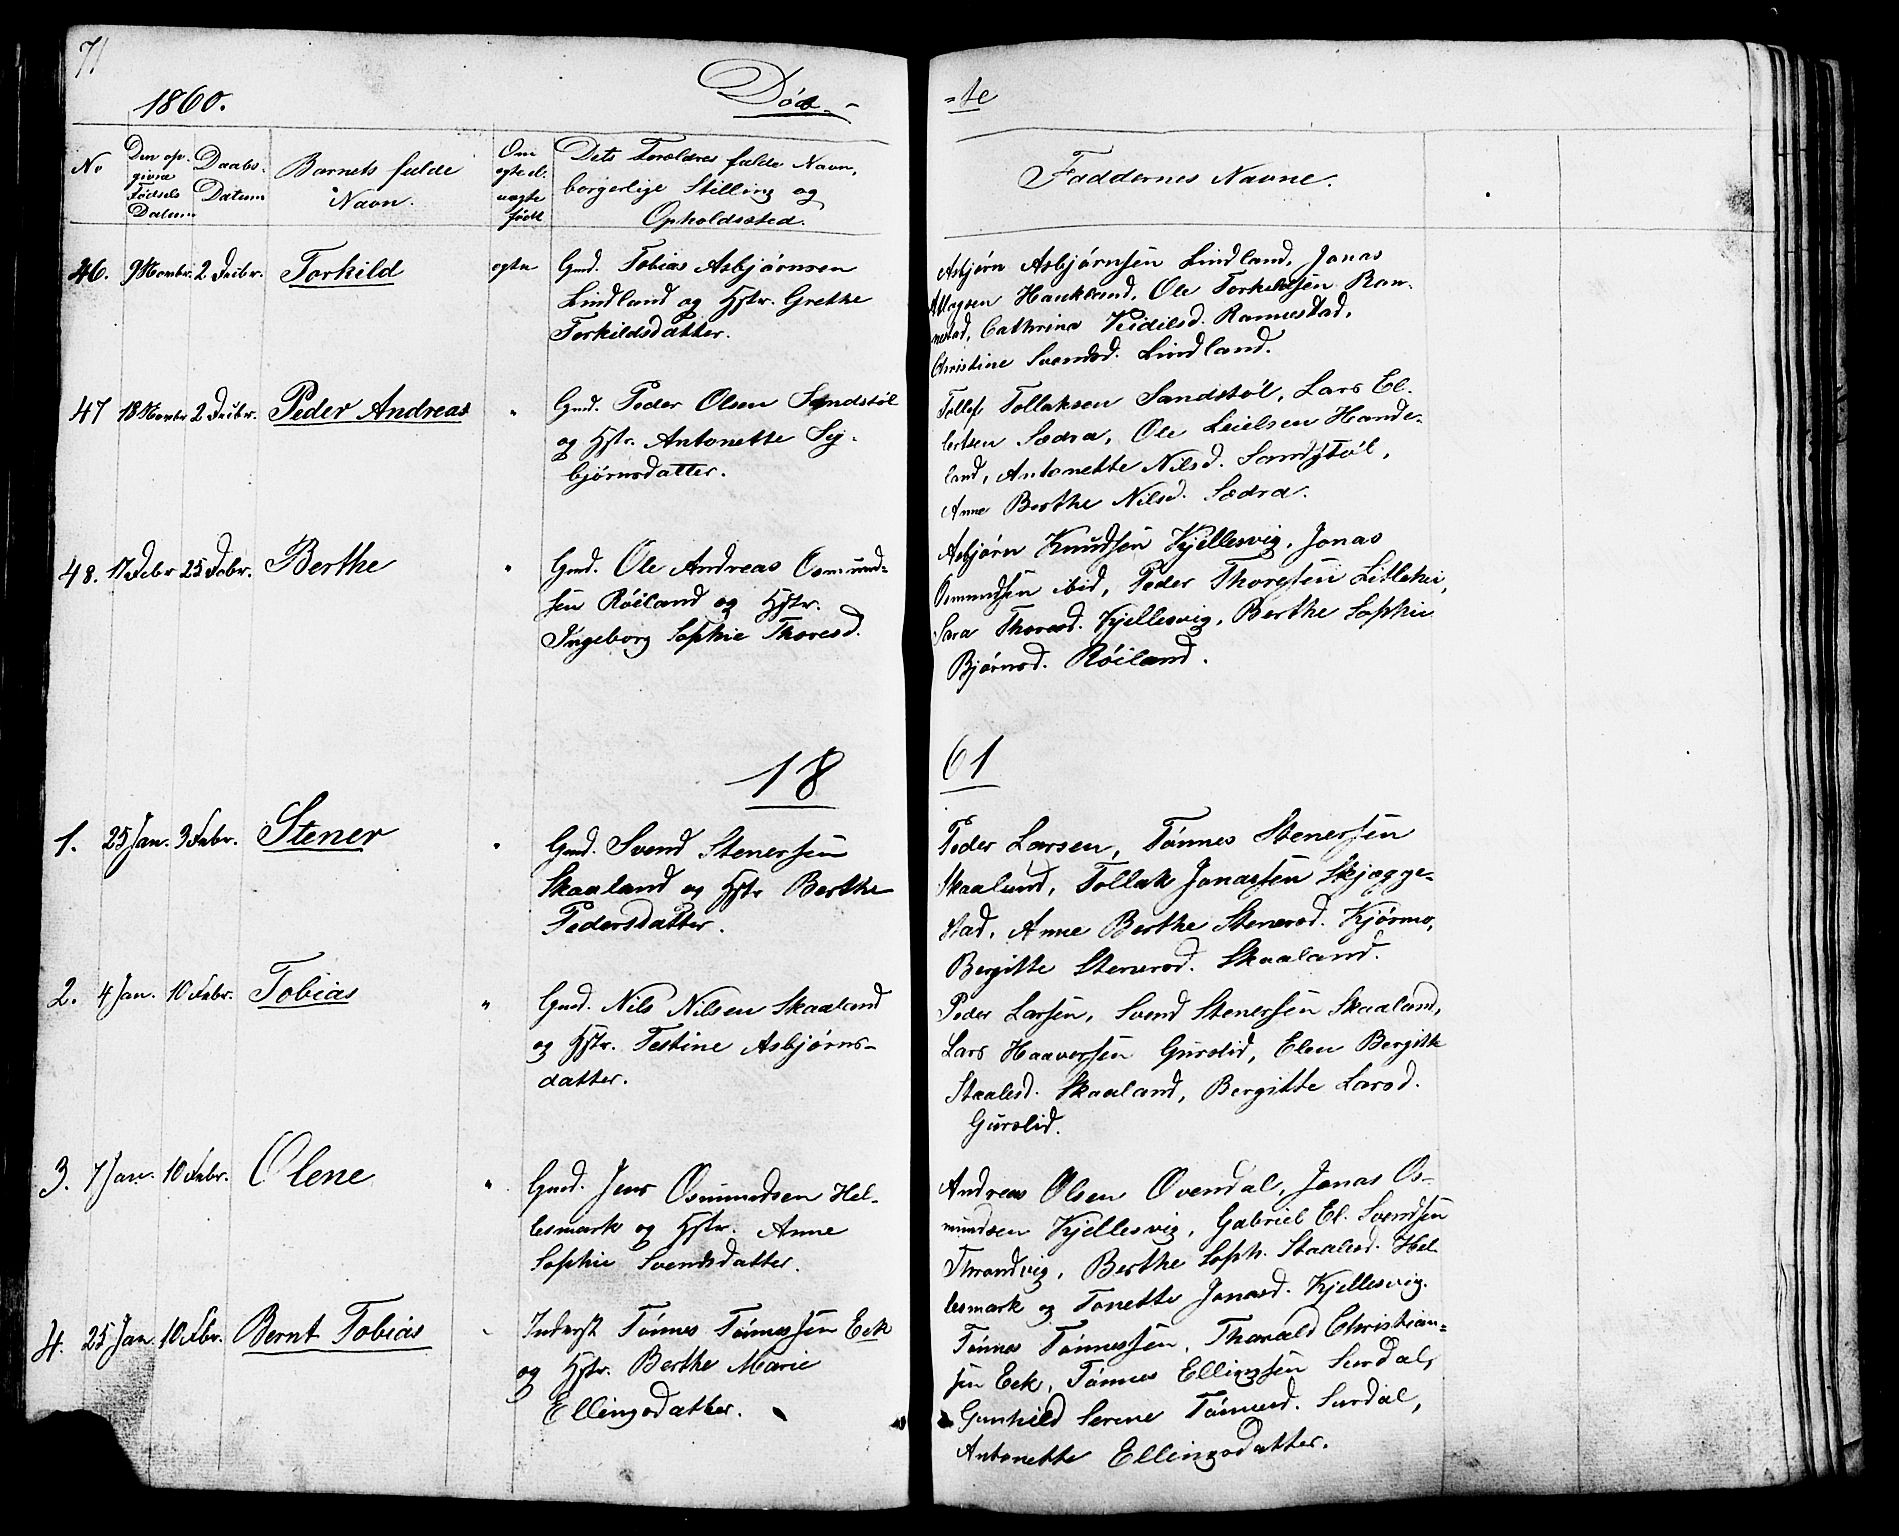 71
1860.
Døb-
=te
No
Den op-
givne
Fødsels
Datum
Daabs-
Datum
Barnets fulde
Navn.
Om
ægte el.
uægte
født
Dets Forældres fulde Navn,
borgerlige Stilling og
Opholdssted.
Faddernes Navne.
46. 9 Novbr. 2 Decbr. Torkild ægte Gmd. Tobias Asbjørnsen
Lindland og Hstr. Grethe
Torkildsdatter.
Asbjørn Asbjørnsen Lindland, Jonas
Atlagsen Haukland, Ole Torkildsen Ram-
nestad, Cathrine Keidilsd. Ramnestad,
Christine Svendsd. Lindland.
47 18 Novbr 2 Decbr. Peder Andreas " Gmd. Peder Olsen Sandstøl
og Hstr. Antonette Sy-
bjørnsdatter.
Tollef Tollaksen Sandstøl, Lars El-
lertsen Sædra, Ole Leielsen Hande-
land, Antonette Nilsd. Sandstøl,
Anne Berthe Nilsd. Sædra.
48. 17 Febr 25 Febr. Berthe " Gmd. Ole Andreas Osmund-
sen Røiland og Hstr.
Ingeborg Sophie Thoresd.
Asbjørn Knudsen Kjellesvig, Jonas
Osmundsen ibid, Peder Thorsen Litlehei,
Sara Thoresd. Kjellesvig, Berthe Sophie
Bjørnsd. Røiland.
18 61
1. 25 Jan. 3 Febr. Stener " Gmd. Svend Stenersen
Skaaland og Hstr Berthe
Pedersdatter.
Peder Larsen, Tønnes Stenersen
Skaaland, Tollak Jonassen Skjægge-
stad, Anne Berthe Stenersd. Kjørmo,
Bergitte Stenersd. Skaaland.
2. 4 Jan. 10 Febr. Tobias " Gmd. Nils Nilsen Skaaland
og Hstr. Testine Asbjørns-
datter.
Peder Larsen, Svend Stenersen Skaaland,
Lars Haaversen Gurslid, Elen Bergitte
Staalesd. Skaaland, Bergitte Larsd.
Gurslid.
3. 7 Jan. 10 Febr. Olene " Gmd. Jens Osmundsen Hel-
lesmark og Hstr. Anne
Sophie Svendsdatter.
Andreas Olsen Ovendal, Jonas Os-
mundsen Kjellesvig, Gabriel El. Svendsen
Thrandvig, Berthe Soph. Staalesd. Hel
lesmark og Tonette Jonasd. Kjellesvig.
4. 25 Jan. 10 Fbr. Bernt Tobias " Inderst Tønnes Tønnessen Eek
og Hstr. Berthe Marie
Ellingsdatter.
Tønnes Tønnessen, Tharald Christian-
sen Eek, Tønnes Ellingsen Surdal,
Gunhild Serine Tønnesd. Surdal,
Antonette Ellingsdatter.